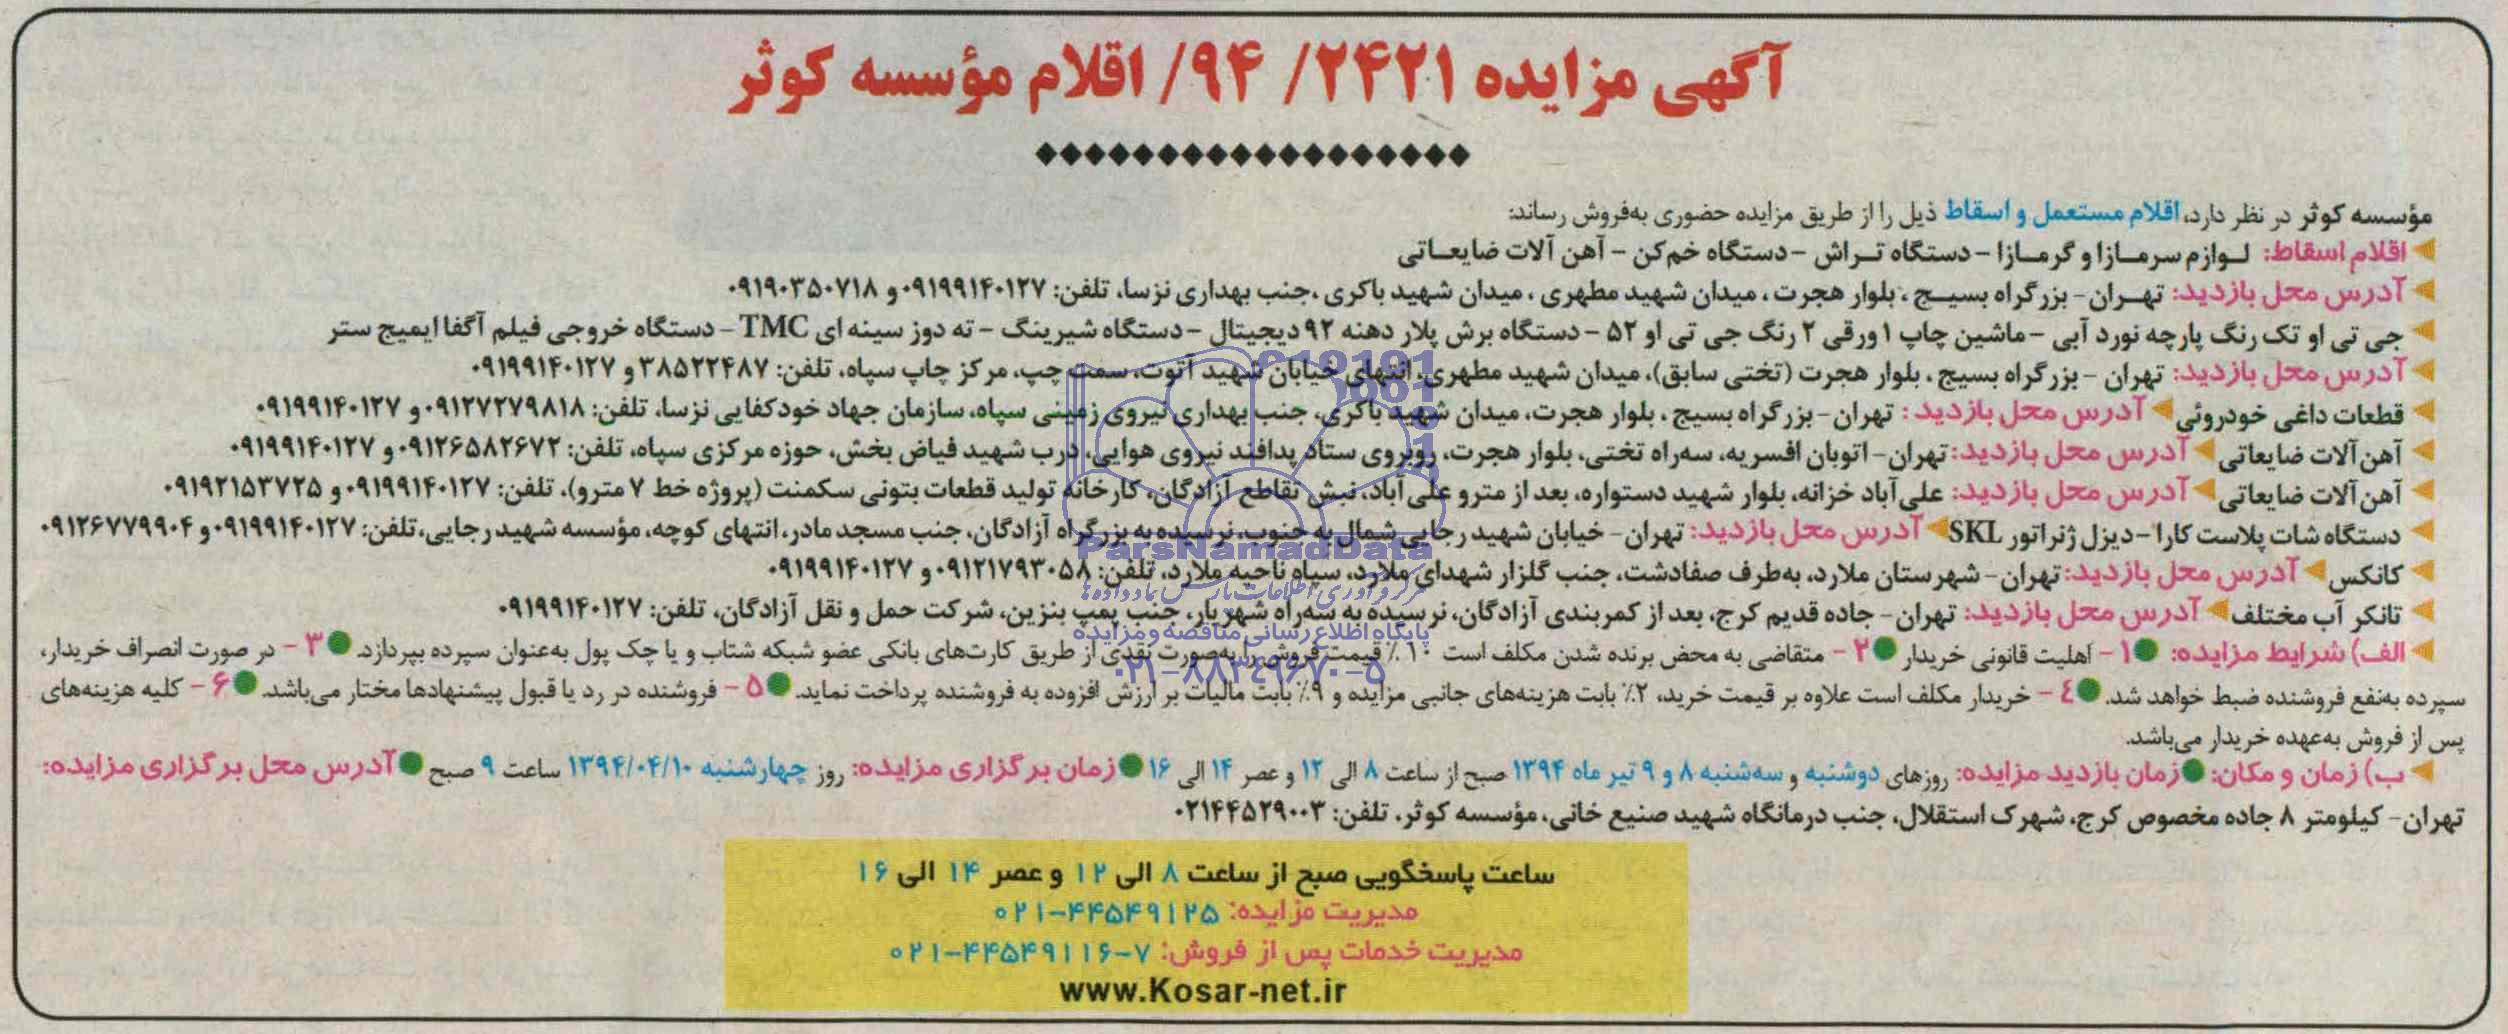 آگهی مزایده ۲۴۲۱/ ۹۴/ اقلام مؤسسه کوثر
مؤسسه کوثر در نظر دارد، اقلام مستعمل و اسقاط ذیل را از طریق مزایده حضوری به‌فروش رساند:
اقلام اسقاط: لـوازم سرمـازا و گرمـازا - دستگاه تـراش - دستگاه خم‌کن - آهن آلات ضایعـاتی
آدرس محل بازدید: تهـران - بزرگراه بسیـج ، بلوار هجرت ، میدان شهید مطهری ، میدان شهید باکری ،جنب بهداری نزسا، تلفن: ۰۹۱۹۹۱۴۰۱۲۷ و ۰۹۱۹۰۳۵۰۷۱۸
جی تی او تک رنگ پارچه نورد آبی - ماشین چاپ ۱ ورقی ۲ رنگ جی تی او ۵۲ - دستگاه برش پلار دهنه ۹۲ دیجیتال - دستگاه شیرینگ - ته دوز سینه ای TMC - دستگاه خروجی فیلم آگفا ایمیج ستر
آدرس محل بازدید: تهران - بزرگراه بسیج ، بلوار هجرت (تختی سابق)، میدان شهید مطهری، انتهای خیابان شهید آتوت، سمت چپ، مرکز چاپ سپاه، تلفن: ۳۸۵۲۲۴۸۷ و ۰۹۱۹۹۱۴۰۱۲۷
قطعات داغی خودروئی آدرس محل بازدید : تهران - بزرگراه بسیج ، بلوار هجرت، میدان شهید باکری، جنب بهداری نیروی زمینی سپاه، سازمان جهاد خودکفایی نزسا، تلفن: ۰۹۱۲۷۲۷۹۸۱۸ و ۰۹۱۹۹۱۴۰۱۲۷
آهن آلات ضایعاتی آدرس محل بازدید: تهران - اتوبان افسریه، سه‌راه تختی، بلوار هجرت، روبروی ستاد پدافند نیروی هوایی، درب شهید فیاض بخش، حوزه مرکزی سپاه، تلفن: ۰۹۱۲۶۵۸۲۶۷۲ و ۰۹۱۹۹۱۴۰۱۲۷
آهن آلات ضایعاتی آدرس محل بازدید: علی‌آباد خزانه، بلوار شهید دستواره، بعد از مترو علی آباد، نبش تقاطع آزادگان، کارخانه تولید قطعات بتونی سکمنت (پروژه خط ۷ مترو)، تلفن: ۰۹۱۹۹۱۴۰۱۲۷ و ۰۹۱۹۲۱۵۳۷۲۵
دستگاه شات پلاست کارا - دیزل ژنراتور SKL آدرس محل بازدید: تهران - خیابان شهید رجایی شمال به جنوب، نرسیده به بزرگراه آزادگان، جنب مسجد مادر، انتهای کوچه، مؤسسه شهید رجایی، تلفن: ۰۹۱۹۹۱۴۰۱۲۷ و ۰۹۱۲۶۷۷۹۹۰۴
کانکس آدرس محل بازدید: تهران - شهرستان ملارد، به‌طرف صفادشت، جنب گلزار شهدای ملارد، سپاه ناحیه ملارد، تلفن: ۰۹۱۲۱۷۹۳۰۵۸ و ۰۹۱۹۹۱۴۰۱۲۷
تانکر آب مختلف آدرس محل بازدید: تهران - جاده قدیم کرج، بعد از کمربندی آزادگان، نرسیده به سه‌راه شهریار، جنب پمپ بنزین، شرکت حمل و نقل آزادگان، تلفن: ۰۹۱۹۹۱۴۰۱۲۷
الف) شرایط مزایده: ۱- اهلیت قانونی خریدار ۲- متقاضی به محض برنده شدن مکلف است ۱۰٪ قیمت فروش را به‌صورت نقدی از طریق کارت‌های بانکی عضو شبکه شتاب و یا چک پول به‌عنوان سپرده بپردازد. ۳- در صورت انصراف خریدار،
سپرده به‌نفع فروشنده ضبط خواهد شد. ٤- خریدار مکلف است علاوه بر قیمت خرید، ۲٪ بابت هزینه‌های جانبی مزایده و ۹٪ بابت مالیات بر ارزش افزوده به فروشنده پرداخت نماید. ۵- فروشنده در رد یا قبول پیشنهادها مختار می‌باشد. ۶- کلیه هزینه‌های
پس از فروش به‌عهده خریدار می‌باشد.
ب) زمان و مکان: زمان بازدید مزایده: روزهای دوشنبه و سه‌شنبه ۸ و ۹ تیر ماه ۱۳۹۴ صبح از ساعت ۸ الی ۱۲ و عصر ۱۴ الی ۱۶ زمان برگزاری مزایده: روز چهارشنبه ۱۳۹۴/۰۴/۱۰ ساعت ۹ صبح آدرس محل برگزاری مزایده:
تهران - کیلومتر ۸ جاده مخصوص کرج، شهرک استقلال، جنب درمانگاه شهید صنیع خانی، مؤسسه کوثر، تلفن: ۰۲۱۴۴۵۲۹۰۰۳
ساعت پاسخگویی صبح از ساعت ۸ الی ۱۲ و عصر ۱۴ الی ۱۶
مدیریت مزایده: ۰۲۱-۴۴۵۴۹۱۲۵
مدیریت خدمات پس از فروش: ۰۲۱-۴۴۵۴۹۱۱۶-۷
www.Kosar-net.ir
ParsNamadData
پایگاه اطلاع رسانی مناقصه و مزایده
۰۲۱-۸۸۳٤۹۶۷۰-۵